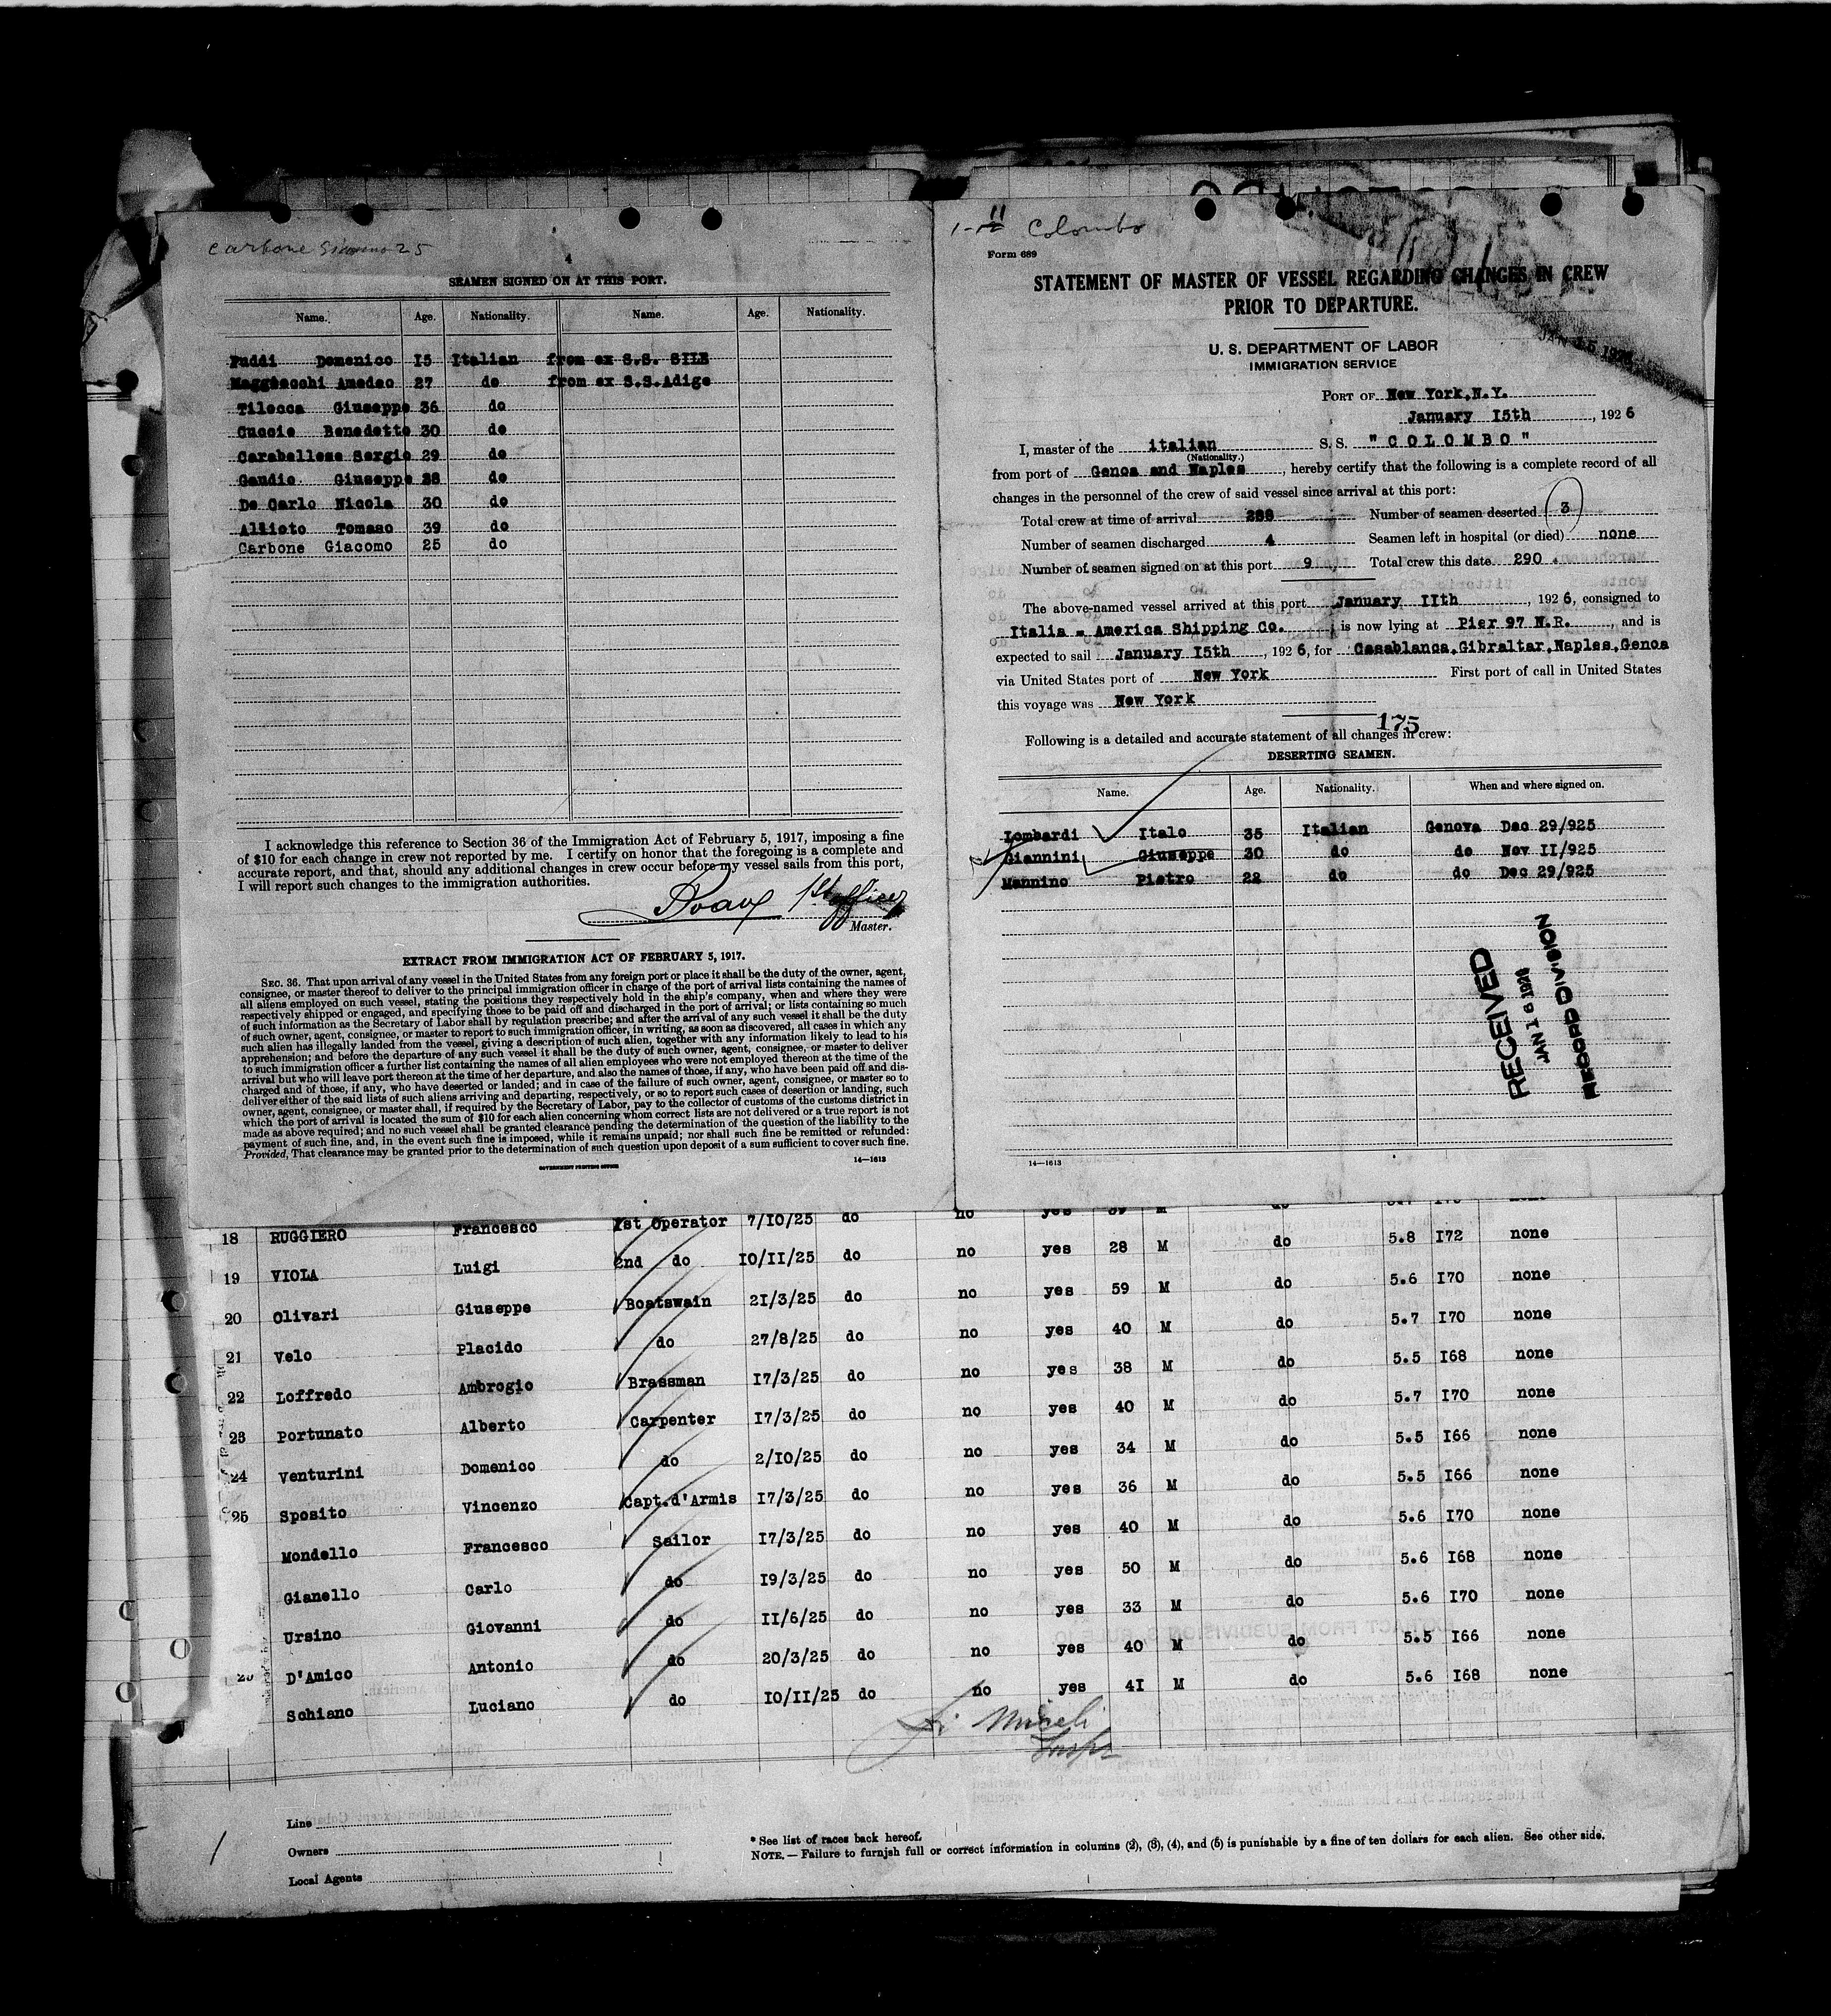 Carbone Giacomo 25
4
SEAMEN SIGNED ON AT THIS PORT.
Name. Age. Nationality. Name. Age. Nationality.
Fuddi Domenico I5 Italian from ex S.S. SILE
Amedeo 27 do from ex S.S.Adige
Tilocca Giuseppe 36 do
Cuccie Benedetto 30 do
Carabellese Sergio 29 do
Gaudio Giuseppe 28 do
De Carlo Nicola 30 do
Allioto Tomaso 39 do
Carbone Giacomo 25 do
I acknowledge this reference to Section 36 of the Immigration Act of February 5, 1917, imposing a fine
of $10 for each change in crew not reported by me. I certify on honor that the foregoing is a complete and
accurate report, and that, should any additional changes in crew occur before my vessel sails from this port,
I will report such changes to the immigration authorities.
1st officer
Master.
EXTRACT FROM IMMIGRATION ACT OF FEBRUARY 5, 1917.
SEC. 36. That upon arrival of any vessel in the United States from any foreign port or place it shall be the duty of the owner, agent,
consignee, or master thereof to deliver to the principal immigration officer in charge of the port of arrival lists containing the names of
all aliens employed on such vessel, stating the positions they respectively hold in the ship's company, when and where they were
respectively shipped or engaged, and specifying those to be paid off and discharged in the port of arrival; or lists containing so much
of such information as the Secretary of Labor shall by regulation prescribe; and after the arrival of any such vessel it shall be the duty
of such owner, agent, consignee, or master to report to such immigration officer, in writing, as soon as discovered, all cases in which any
such alien has illegally landed from the vessel, giving a description of such alien, together with any information likely to lead to his
apprehension; and before the departure of any such vessel it shall be the duty of such owner, agent, consignee, or master to deliver
to such immigration officer a further list containing the names of all alien employees who were not employed thereon at the time of the
arrival but who will leave port thereon at the time of her departure, and also the names of those, if any, who have been paid off and dis-
charged and of those, if any, who have deserted or landed; and in case of the failure of such owner, agent, consignee, or master so to
deliver either of the said lists of such aliens arriving and departing, respectively, or so to report such cases of desertion or landing, such
owner, agent, consignee, or master shall, if required by the Secretary of Labor, pay to the collector of customs of the customs district in
which the port of arrival is located the sum of $10 for each alien concerning whom correct lists are not delivered or a true report is not
made as above required; and no such vessel shall be granted clearance pending the determination of the question of the liability to the
payment of such fine, and, in the event such fine is imposed, while it remains unpaid; nor shall such fine be remitted or refunded:
Provided, That clearance may be granted prior to the determination of such question upon deposit of a sum sufficient to cover such fine.
GOVERNMENT PRINTING OFFICE 14—1613
Colombo
Form 689
STATEMENT OF MASTER OF VESSEL REGARDING CHANGES IN CREW
PRIOR TO DEPARTURE.
JAN 15 1926
U. S. DEPARTMENT OF LABOR
IMMIGRATION SERVICE
PORT OF New York,N.Y.
January I5th, 1926
I, master of the italian S.S. "COLOMBO"
(Nationality.)
from port of Genoa and Naples, hereby certify that the following is a complete record of all
changes in the personnel of the crew of said vessel since arrival at this port:
Total crew at time of arrival 288 Number of seamen deserted 3
Number of seamen discharged 4 Seamen left in hospital (or died) none
Number of seamen signed on at this port 9 Total crew this date 290.
The above-named vessel arrived at this port January IIth, 1926, consigned to
Italia - America Shipping Co.; is now lying at Pier 97 N.R., and is
expected to sail January I5th, 1926, for Casablanca,Gibraltar,Naples,Genoa
via United States port of New York First port of call in United States
this voyage was New York
175
Following is a detailed and accurate statement of all changes in crew:
DESERTING SEAMEN.
Name. Age. Nationality. When and where signed on.
Lombardi Italo 35 Italian Genova Dec 29/925
Giannini Giuseppe 30 do do Nov II/925
Mannino Pietro 22 do do Dec 29/925
RECEIVED
JAN 16 1926
RECORD DIVISION
14—1613
18 RUGGIERO Francesco 1st Operator 7/I0/25 do no yes 39 M do
19 VIOLA Luigi 2nd do I0/II/25 do no yes 28 M do 5.8 I72 none
20 Olivari Giuseppe Boatswain 2I/3/25 do no yes 59 M do 5.6 I70 none
21 Velo Placido do 27/8/25 do no yes 40 M do 5.7 I70 none
22 Loffredo Ambrogio Brassman I7/3/25 do no yes 38 M do 5.5 I68 none
23 Portunato Alberto Carpenter I7/3/25 do no yes 40 M do 5.7 I70 none
24 Venturini Domenico do 2/I0/25 do no yes 34 M do 5.5 I66 none
25 Sposito Vincenzo Capt.d'Armis I7/3/25 do no yes 36 M do 5.5 I66 none
Mondello Francesco Sailor I7/3/25 do no yes 40 M do 5.6 I70 none
Gianello Carlo do I9/3/25 do no yes 50 M do 5.6 I68 none
Ursino Giovanni do II/6/25 do no yes 33 M do 5.6 I70 none
D'Amico Antonio do 20/3/25 do no yes 40 M do 5.5 I66 none
Schiano Luciano do I0/II/25 do no yes 4I M do 5.6 I68 none
Line
Owners
Local Agents
* See list of races back hereof.
NOTE.— Failure to furnish full or correct information in columns (2), (3), (4), and (5) is punishable by a fine of ten dollars for each alien. See other side.